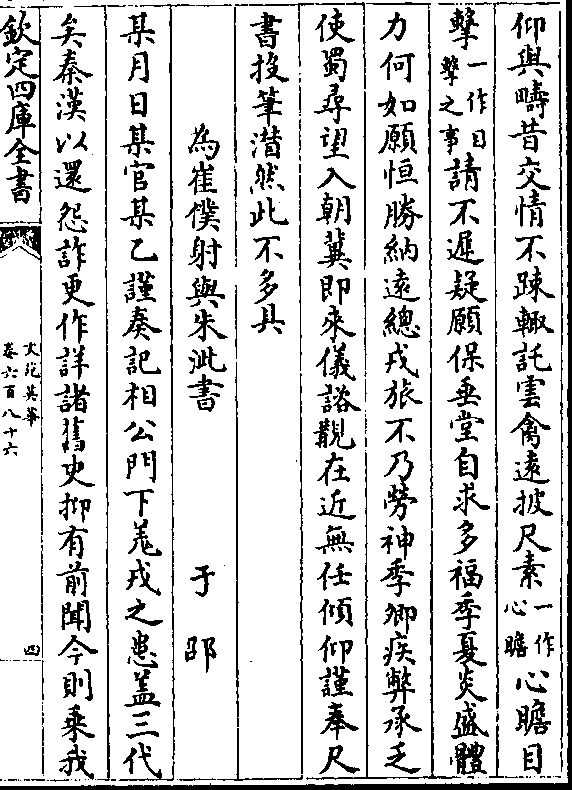 仰與疇昔交情不踈輙託雲禽遠披尺素一作心瞻心瞻目
擊一作目擊之事請不遲疑願保垂堂自求多福季夏炎盛體
力何如願恒勝納遠總戎旅不乃勞神季卿疾弊承乏
使蜀尋望入朝冀即來儀諮覯在近無任傾仰謹奉尺
書投筆潸然此不多具
為崔僕射與朱泚書 于邵
某月日某官某乙謹奏記相公門下羌戎之患蓋三代
矣秦漢以還怨詐更作詳諸舊史抑有前聞今則乘我
欽定四庫全書
文苑英華
卷六百八十六
四